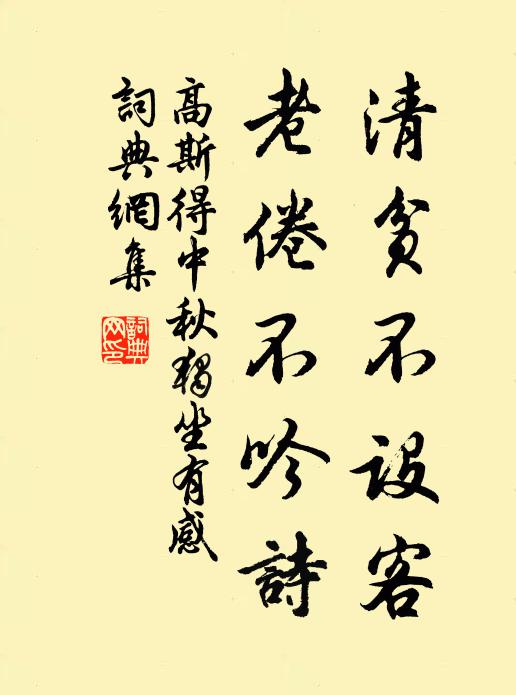 清貧不設客
老倦不吟詩
高斯得中秋獨坐有感
詞典網集
詞典網印